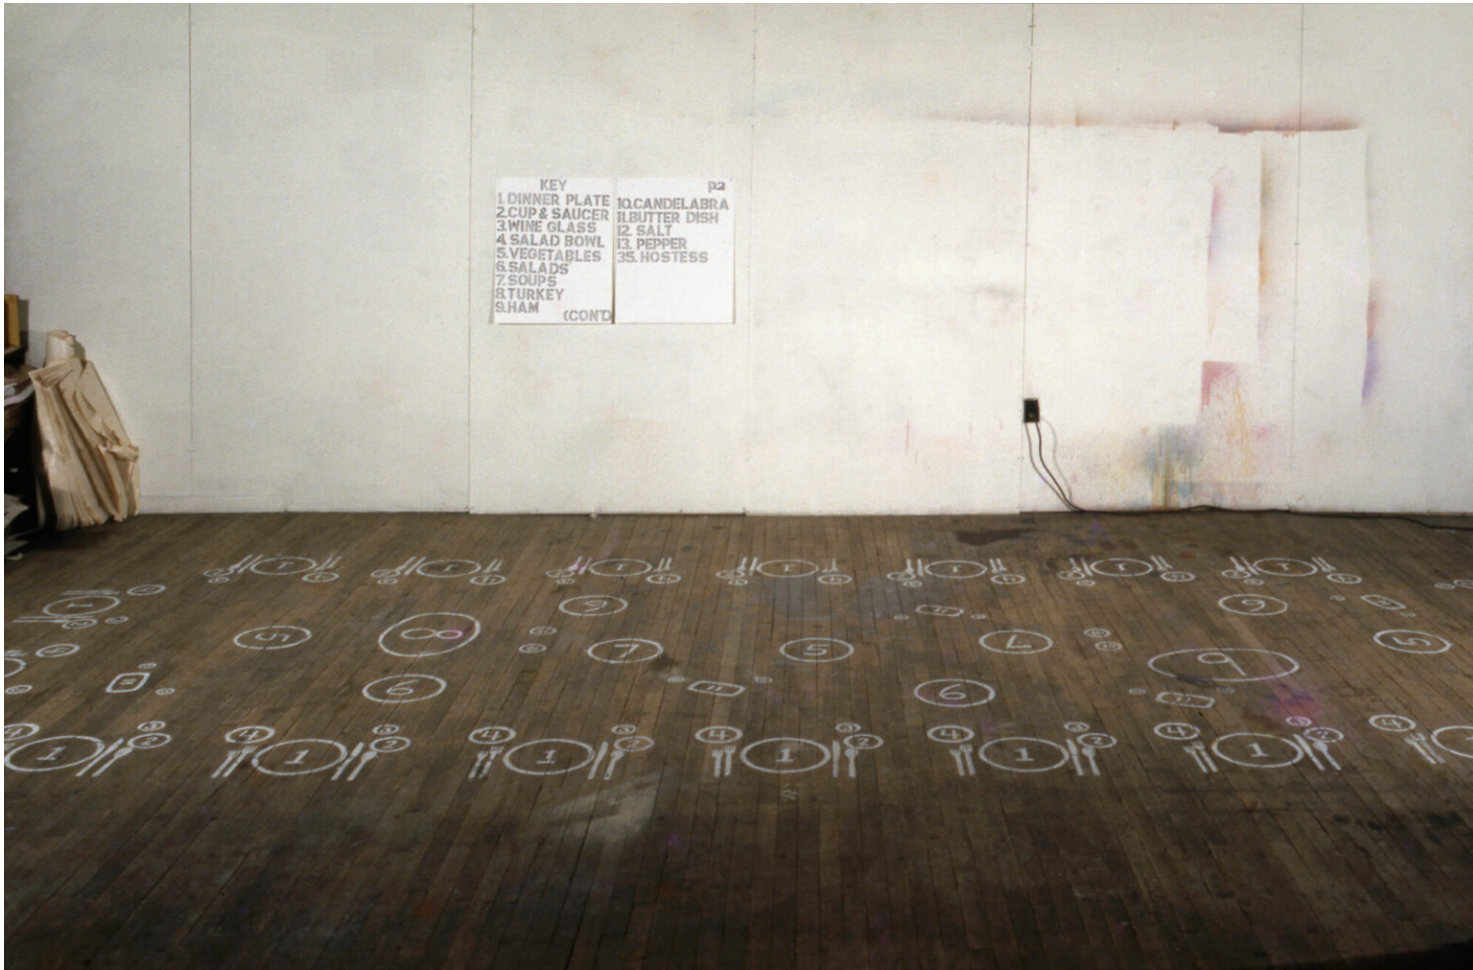 KEY
1. DINNER PLATE
2. CUP & SAUCER
3. WINE GLASS
4. SALAD BOWL
5. VEGETABLES
6. SALADS
7. SOUPS
8. TURKEY
9. HAM
(CON'D
P2
10. CANDELABRA
11. BUTTER DISH
12. SALT
13. PEPPER
35. HOSTESS
1 1 1 1 1 1 1
1 6 11 6
5 8 7 5 7 5
9
11 6 11 6 11
4 3 4 3 4 3 4 3 4 3 4 3 4
2 2 2 2 2 2
1 1 1 1 1 1